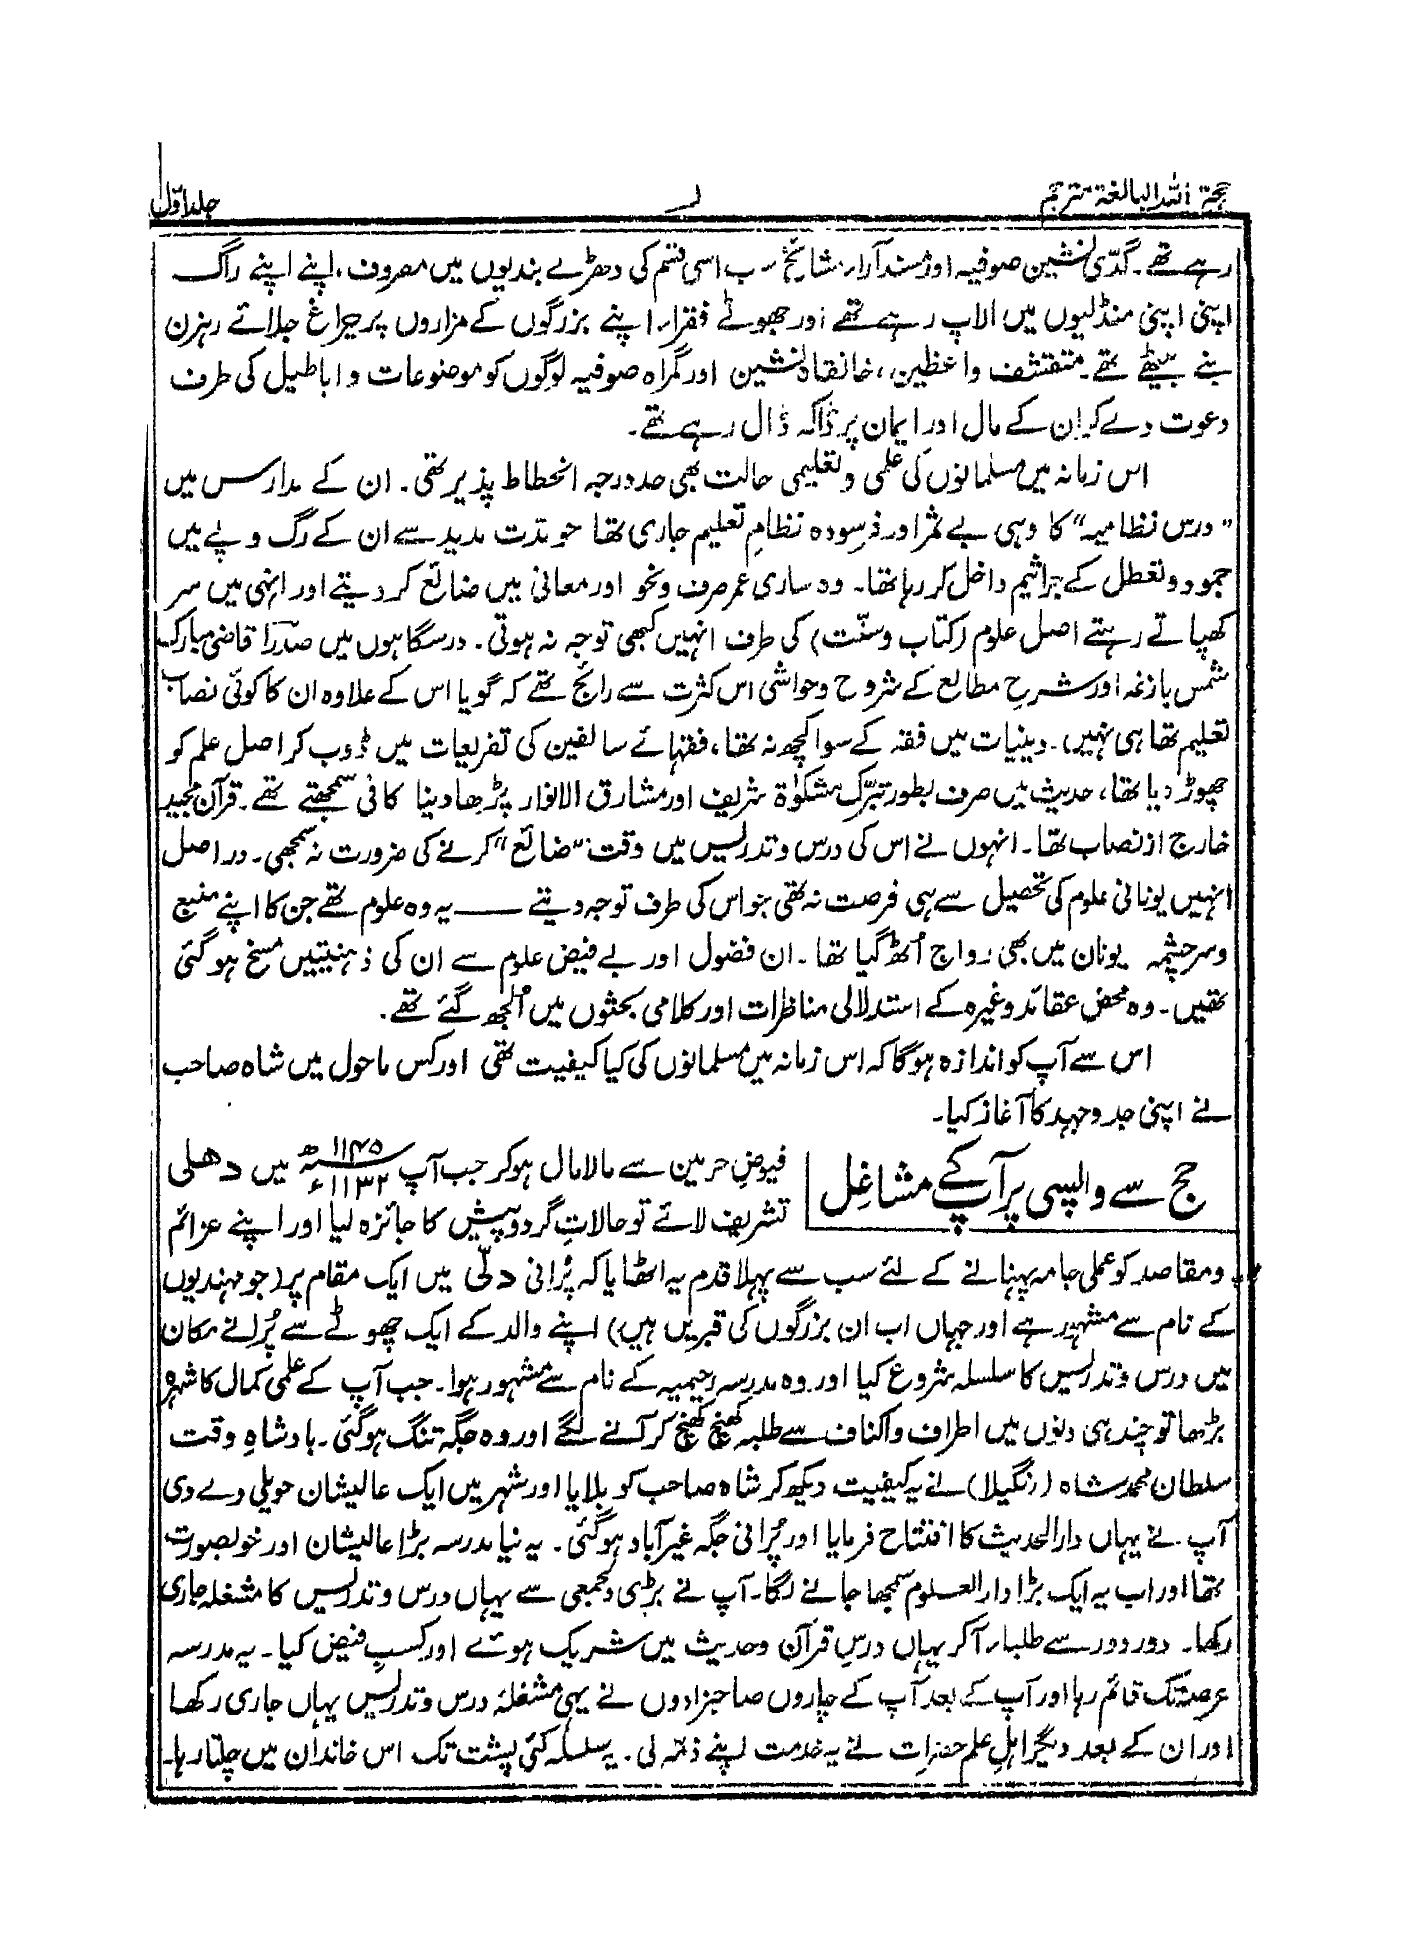 حجۃ اللہ البالغۃ مترجم
ل
جلد اوّل
رہے تھے۔ گدّی نشین صوفیہ اور مسند آراء مشائخ سب اسی قسم کی دھڑے بندیوں میں مصروف، اپنے اپنے راگ
اپنی اپنی منڈلیوں میں الاپ رہے تھے اور جھوٹے فقراء اپنے بزرگوں کے مزاروں پر چراغ جلائے رہزن
بنے بیٹھے تھے۔ متقشف واعظین، خانقاہ نشین اور گمراہ صوفیہ لوگوں کو موضوعات و اباطیل کی طرف
دعوت دے کر ان کے مال اور ایمان پر ڈاکہ ڈال رہے تھے۔
اس زمانہ میں مسلمانوں کی علمی و تعلیمی حالت بھی حد درجہ انحطاط پذیر تھی۔ ان کے مدارس میں
"درس نظامیہ" کا وہی بے ثمر اور فرسودہ نظامِ تعلیم جاری تھا جو مدّت مدید سے ان کے رگ و پے میں
جمود و تعطل کے جراثیم داخل کر رہا تھا۔ وہ ساری عمر صرف و نحو اور معانی میں ضائع کر دیتے اور انہی میں سر
کھپاتے رہتے اصل علوم (کتاب و سنّت) کی طرف انہیں کبھی توجہ نہ ہوتی۔ درسگاہوں میں صدرا قاضی مبارک
شمس بازغہ اور شرح مطالع کے شروح و حواشی اس کثرت سے رائج تھے کہ گویا اس کے علاوہ ان کا کوئی نصاب
تعلیم تھا ہی نہیں۔ دینیات میں فقہ کے سوا کچھ نہ تھا، فقہائے سالفین کی تفریعات میں ڈوب کر اصل علم کو
چھوڑ دیا تھا، حدیث میں صرف بطور تبرّک مشکوٰۃ شریف اور مشارق الانوار پڑھا دینا کافی سمجھتے تھے۔ قرآن مجید
خارج از نصاب تھا۔ انہوں نے اس کی درس و تدریس میں وقت "ضائع" کرنے کی ضرورت نہ سمجھی۔ در اصل
انہیں یونانی علوم کی تحصیل سے ہی فرصت نہ تھی جو اس کی طرف توجہ دیتے —— یہ وہ علوم تھے جن کا اپنے منبع
و سرچشمہ یونان میں بھی رواج اُٹھ گیا تھا۔ ان فضول اور بے فیض علوم سے ان کی ذہنیتیں مسخ ہو گئی
تھیں۔ وہ محض عقائد وغیرہ کے استدلالی مناظرات اور کلامی بحثوں میں اُلجھ گئے تھے۔
اس سے آپ کو اندازہ ہوگا کہ اس زمانہ میں مسلمانوں کی کیا کیفیت تھی اور کس ماحول میں شاہ صاحب
نے اپنی جدوجہد کا آغاز کیا۔
حج سے واپسی پر آپ کے مشاغل
فیوضِ حرمین سے مالامال ہو کر جب آپ ۱۱۴۵ھ ۱۱۳۲ء میں دھلی
تشریف لائے تو حالاتِ گرد و پیش کا جائزہ لیا اور اپنے عزائم
و مقاصد کو عملی جامہ پہنانے کے لئے سب سے پہلا قدم یہ اٹھایا کہ پُرانی دلّی میں ایک مقام پر (جو مہندیوں
کے نام سے مشہور ہے اور جہاں اب ان بزرگوں کی قبریں ہیں) اپنے والد کے ایک چھوٹے سے پُرانے مکان
میں درس و تدریس کا سلسلہ شروع کیا اور وہ مدرسہ رحیمیہ کے نام سے مشہور ہوا۔ جب آپ کے علمی کمال کا شہرہ
بڑھا تو چند ہی دنوں میں اطراف و اکناف سے طلبہ کھنچ کھنچ کر آنے لگے اور وہ جگہ تنگ ہو گئی۔ بادشاہِ وقت
سلطان محمد شاہ (رنگیلا) نے یہ کیفیت دیکھ کر شاہ صاحب کو بلایا اور شہر میں ایک عالیشان حویلی دے دی
آپ نے یہاں دارالحدیث کا افتتاح فرمایا اور پُرانی جگہ غیر آباد ہو گئی۔ یہ نیا مدرسہ بڑا عالیشان اور خوبصورت
تھا اور اب یہ ایک بڑا دارالعلوم سمجھا جانے لگا۔ آپ نے بڑی دلجمعی سے یہاں درس و تدریس کا مشغلہ جاری
رکھا۔ دور دور سے طلباء آکر یہاں درسِ قرآن و حدیث میں شریک ہوئے اور کسبِ فیض کیا۔ یہ مدرسہ
عرصہ تک قائم رہا اور آپ کے بعد آپ کے چاروں صاحبزادوں نے یہی مشغلۂ درس و تدریس یہاں جاری رکھا
اور ان کے بعد دیگر اہلِ علم حضرات نے یہ خدمت اپنے ذمّہ لی۔ یہ سلسلہ کئی پشت تک اس خاندان میں چلتا رہا۔